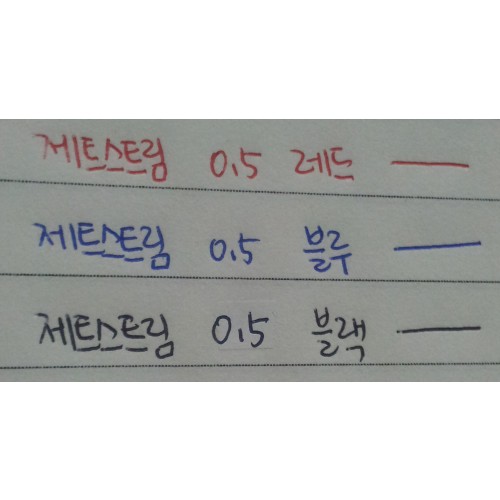 제트스트림 0.5 레드
제트스트림 0.5 블루
제트스트림 0.5 블랙